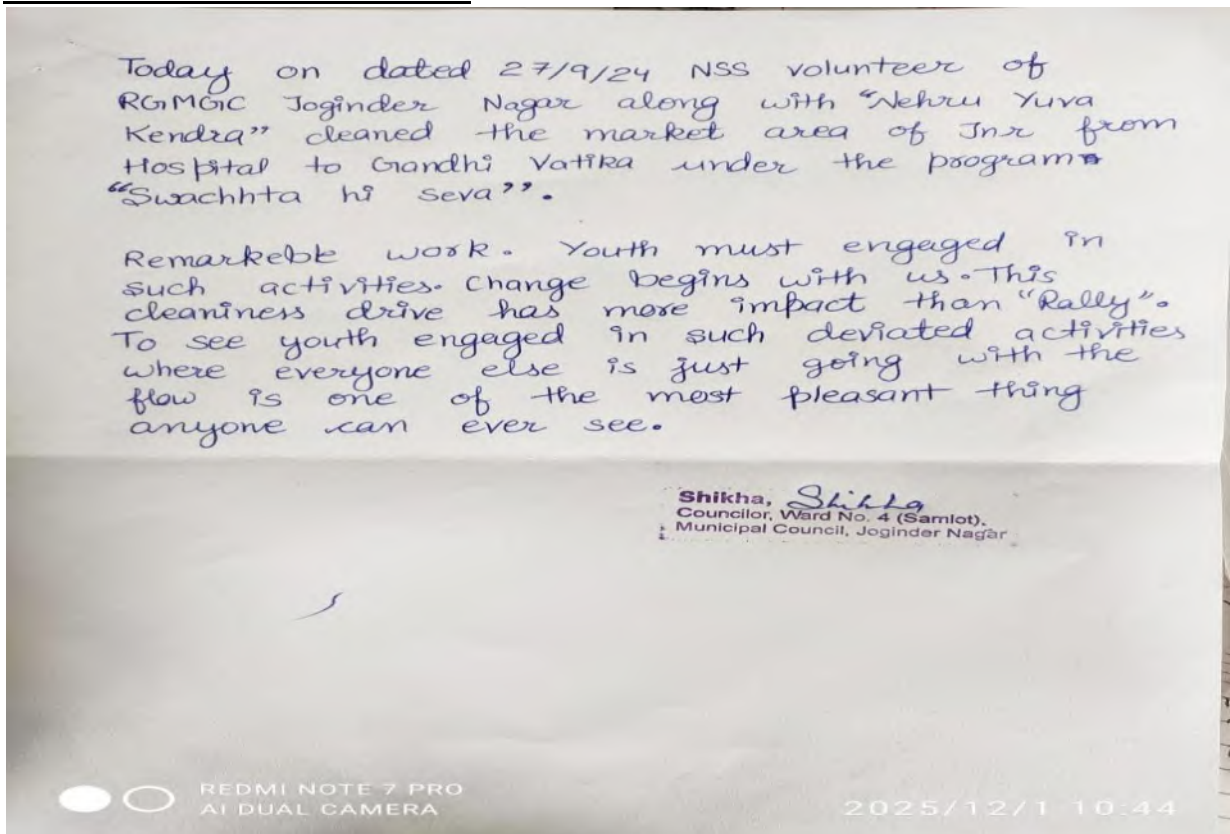 Today on dated 27/9/24 NSS volunteer of
RGMGC Joginder Nagar along with "Nehru Yuva
Kendra" cleaned the market area of Jnr from
Hospital to Gandhi Vatika under the program
"Swachhta hi seva".
Remarkebk work. Youth must engaged in
such activities. Change begins with us. This
cleaniness drive has more impact than "Rally".
To see youth engaged in such deviated activities
where everyone else is just going with the
flow is one of the most pleasant thing
anyone can ever see.
Shikha, Shikha
Councilor, Ward No. 4 (Samlot),
Municipal Council, Joginder Nagar
REDMI NOTE 7 PRO
AI DUAL CAMERA
2025/12/1 10:44